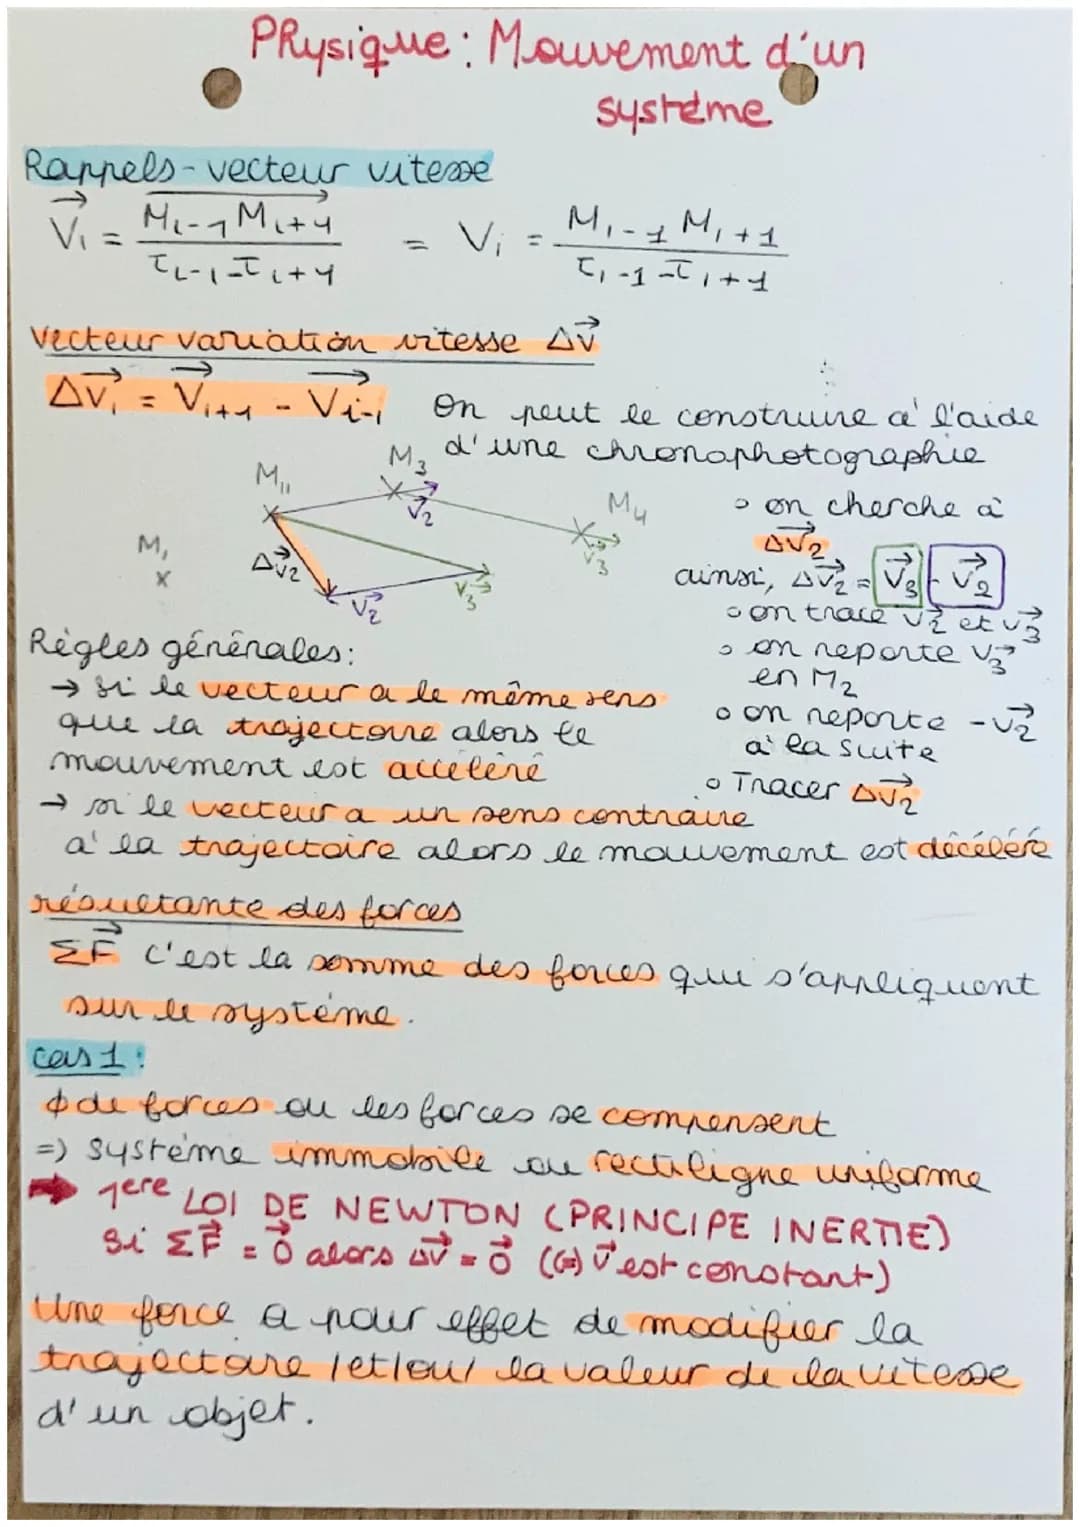 PRysique : Mouvement d'un
système
Rappels - vecteur vitesse
V⃗i = M i-1 M i+1 / τ i-1 - τ i+1 = Vi = M i-1 M i+1 / τ i-1 - τ i+1
vecteur variation vitesse Δv⃗
Δv⃗i = V⃗i+1 - V⃗i-1
On peut le construire à l'aide
d'une chronophotographie
M, M11 M3 M4
Δv⃗2 v⃗2 v⃗3 v⃗2 v⃗3
o on cherche à
Δv⃗2
ainsi, Δv⃗2 = v⃗3 - v⃗2
o on trace v⃗2 et v⃗3
o on reporte v⃗3
en M2
o on reporte -v⃗2
à la suite
o Tracer Δv⃗2
Règles générales :
→ si le vecteur a le même sens
que la trajectoire alors le
mouvement est accéléré
→ si le vecteur a un sens contraire
à la trajectoire alors le mouvement est décéléré
résultante des forces
ΣF⃗ c'est la somme des forces qui s'appliquent
sur le système.
cas 1 :
ϕ de forces ou les forces se compensent
=) système immobile ou rectiligne uniforme
➡ 1ere LOI DE NEWTON (PRINCIPE INERTIE)
Si ΣF⃗ = 0⃗ alors Δv⃗ = 0⃗ (⇔ v⃗ est constant)
Une force a pour effet de modifier la
trajectoire /et/ou/ la valeur de la vitesse
d'un objet.